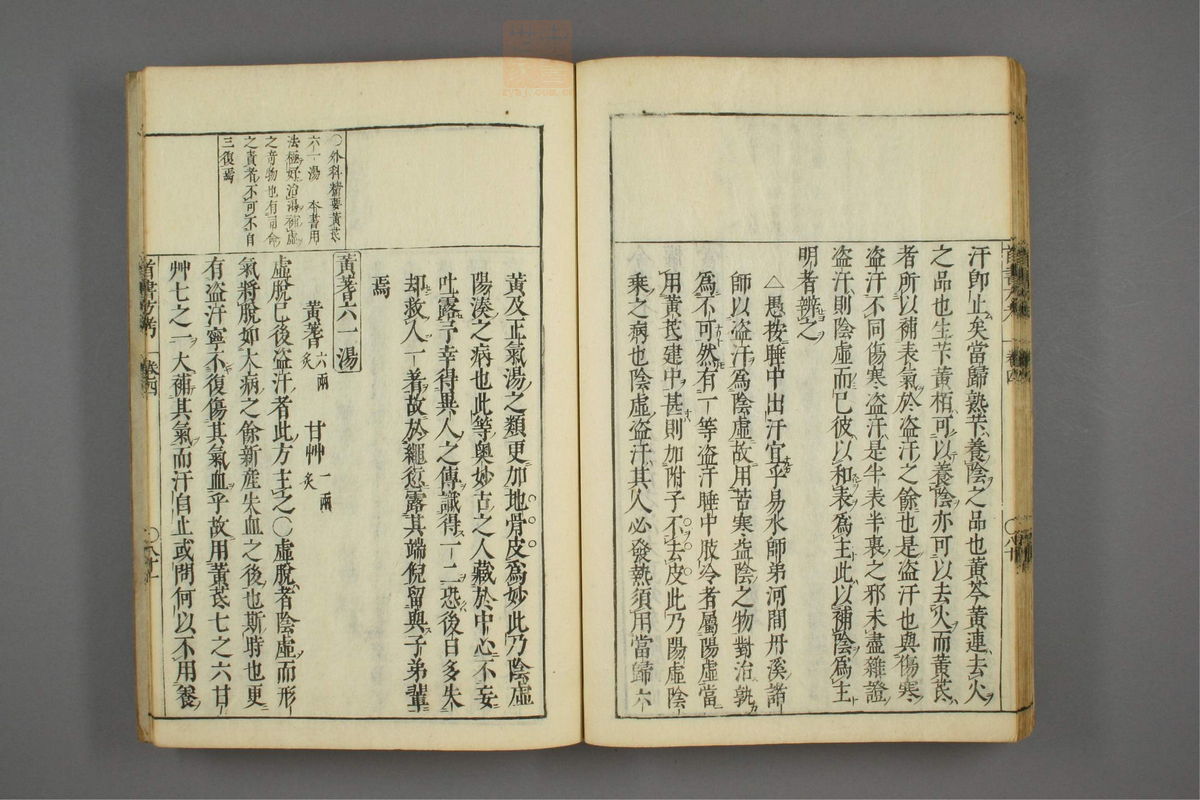 汗卽止矣當歸熟芐養陰之品也黃芩黃連去火
之品也生芐黃栢可以養陰亦可以去火而黃芪
者所以補表氣於盗汗之餘也是盗汗也與傷寒
盗汗不同傷寒盗汗是半表半裏之邪未盡雜證
盗汗則陰虛而已彼以和表爲主此以補陰爲主
明者辨之
△愚按睡中出汗宜乎易水師弟河間丹溪諸
師以盗汗爲陰虛故用苦寒益陰之物對治孰
爲不可然有一等盗汗睡中肢冷者屬陽虛當
用黃芪建中甚則加附子不去皮此乃陽虛陰
乘之病也陰虛盗汗其人必發熱須用當歸六
黃及正氣湯之類更加地骨皮爲妙此乃陰虛
陽湊之病也此等奥妙古之人藏於中心不妄
吐露予幸得異人之傳識得一二恐後日多失
却救人一着故於繩愆露其端倪留與子弟輩
焉
〇外科精要黃芪
六一湯 本書用
法極好治渴補虛
之奇物也有司命
之責者不可不自
三復焉
黃蓍六一湯
黃蓍六兩炙 甘艸一兩炙
虛脫已後盗汗者此方主之〇虛脫者陰虛而形
氣將脫如大病之餘新産失血之後也斯時也更
有盗汗寧不復傷其氣血乎故用黃芪七之六甘
艸七之一大補其氣而汗自止或問何以不用養
卷四